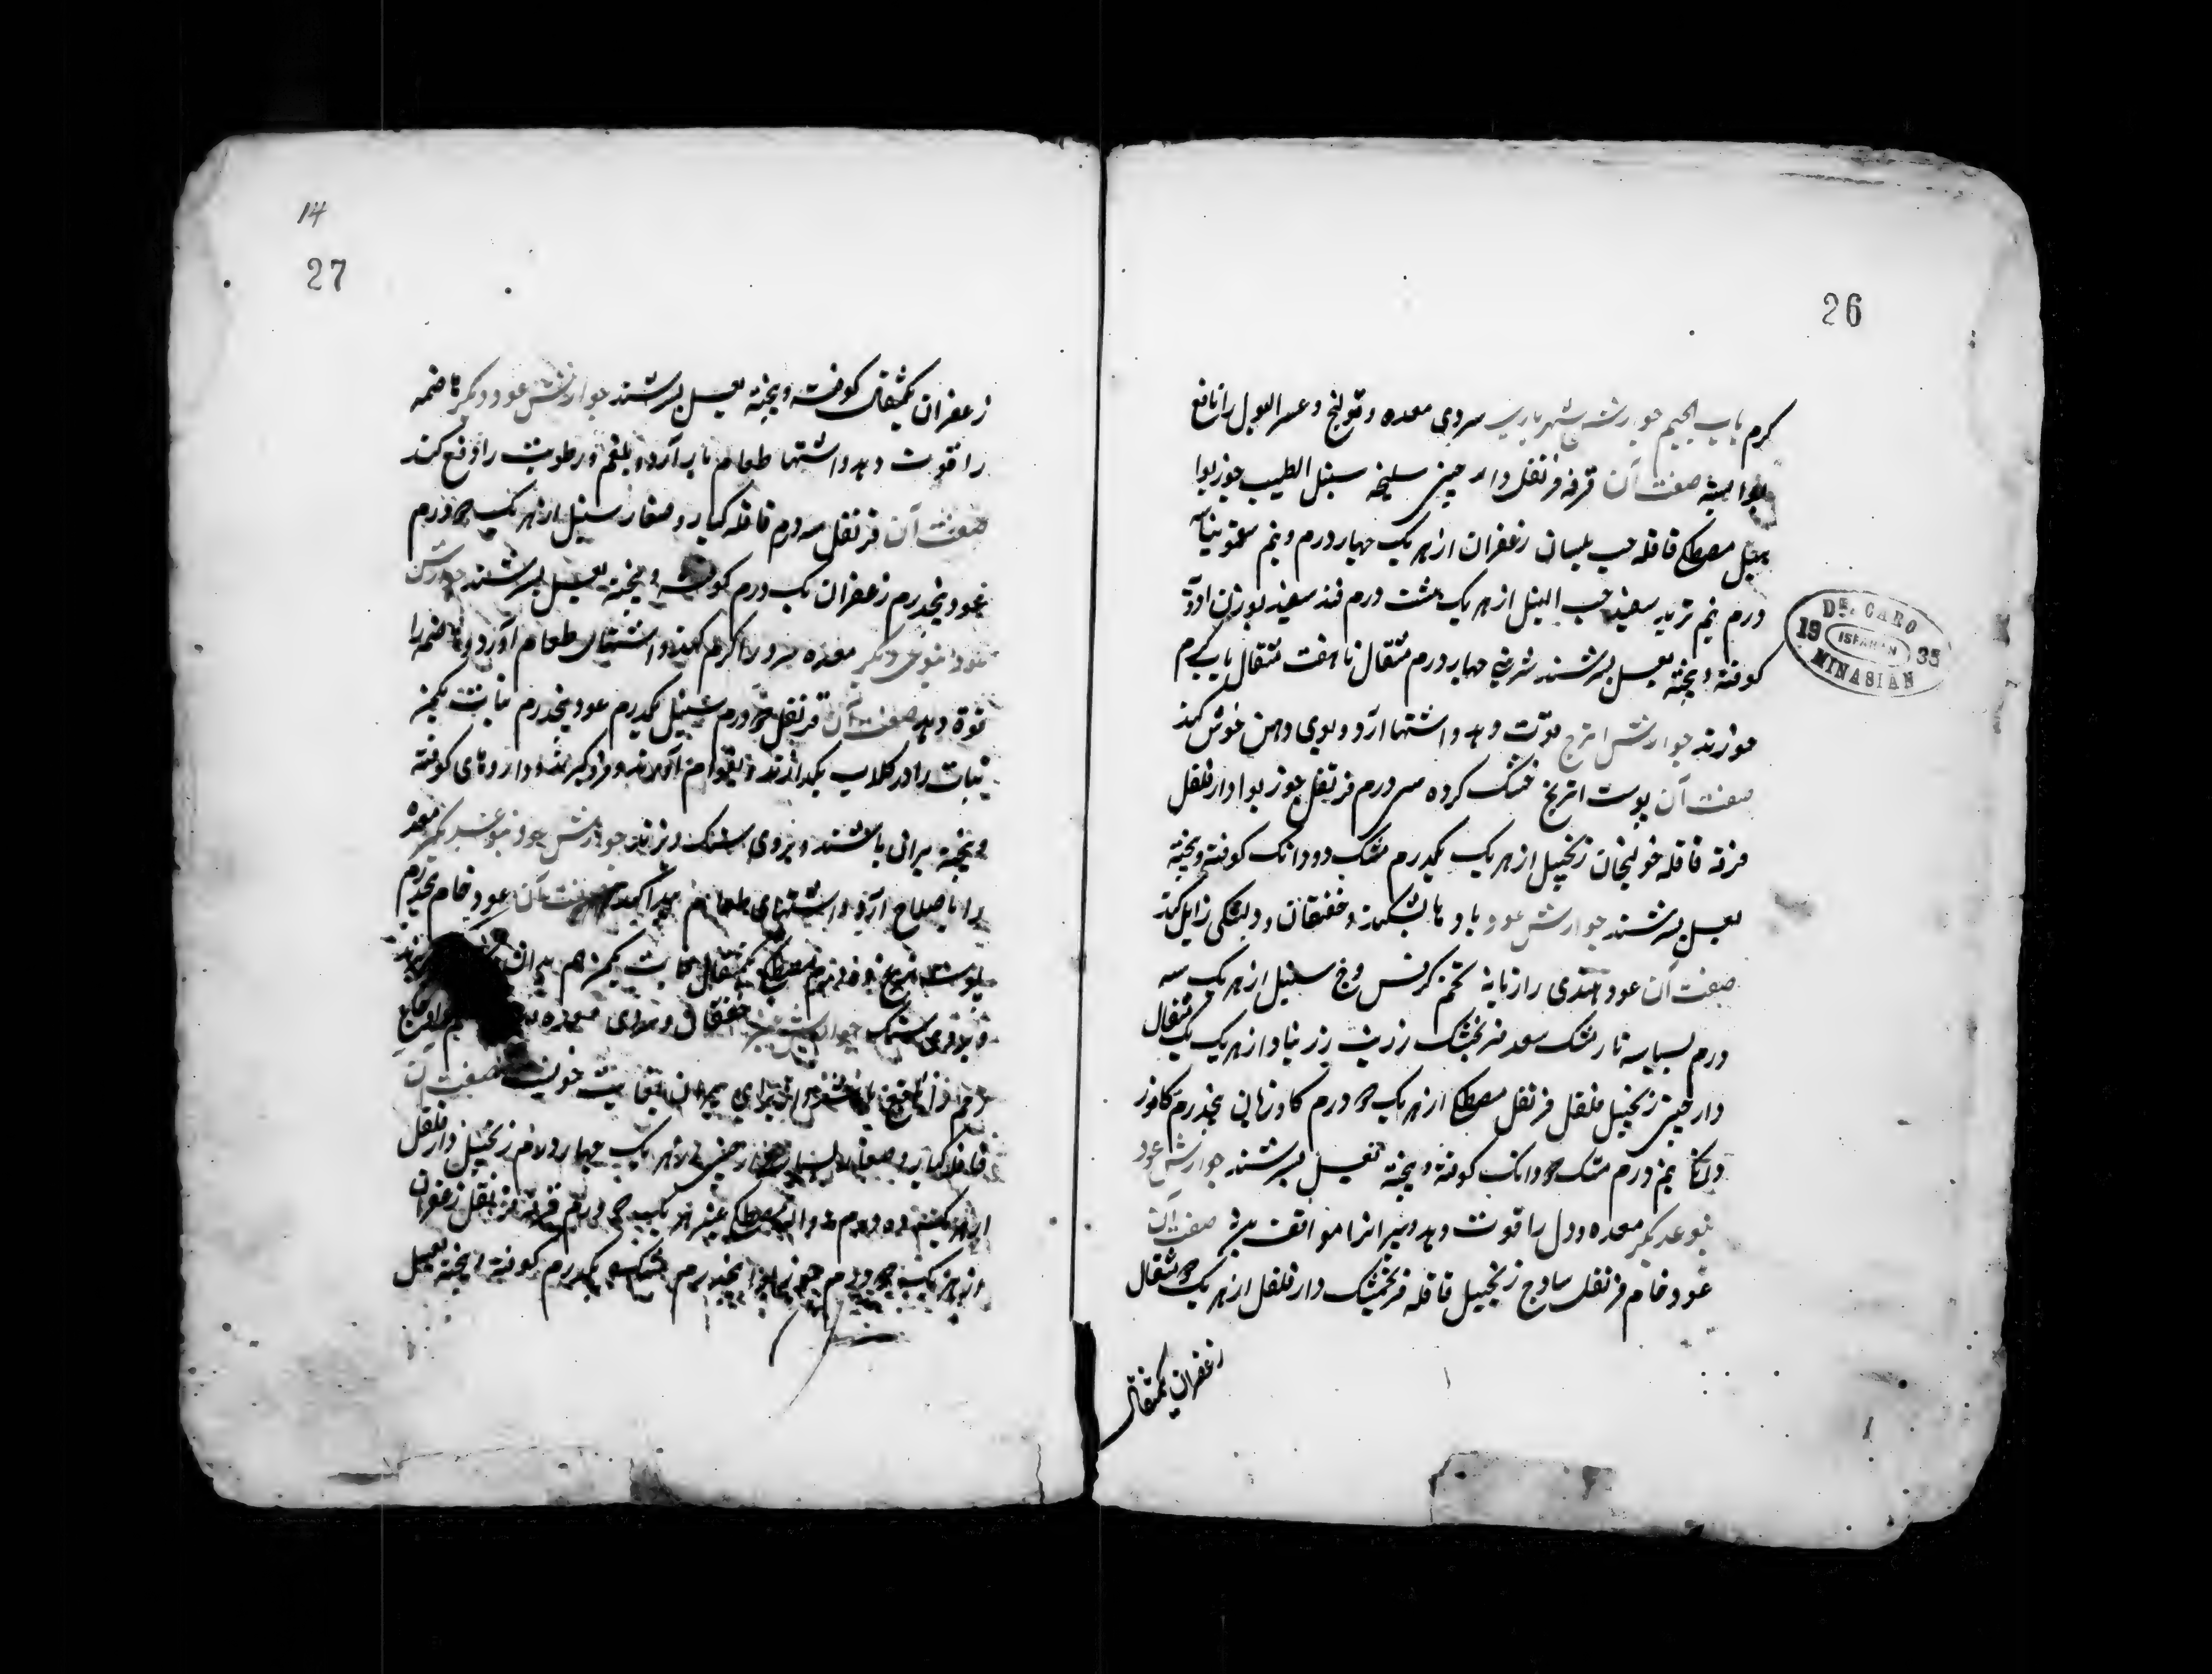 26
کرم باب الجیم جوارش شهریاری سردی معده و قولنج و عسر البول را نافع
بود صفت آن قرفه قرنفل دارچینی سلیخه سنبل الطیب جوزبوا
مصطکی قاقله حب بلسان زعفران از هر یک چهار درم و نیم سقمونیا سه
درم نیم تربد سفید حب النیل از هر یک هشت درم قند سفید بوزن ادویه
کوفته و بیخته بعسل بسرشند شربتی چهار درم مثقال تا هفت مثقال باب کرم
خورند جوارش اترج قوت دهد و اشتها آرد و بوی دهن خوش کند
صفت آن پوست اترج خشک کرده سی درم قرنفل جوزبوا دارفلفل
قرفه قاقله خولنجان زنجبیل از هر یک یکدرم مشک دو دانک کوفته و بیخته
بعسل بسرشند جوارش عود بادها بشکند و خفقان و دلتنگی زایل کند
صفت آن عود هندی رازیانه تخم کرفس وج سنبل از هر یک سه
درم بسباسه نارمشک سعد فرنجمشک زرنب زرنباد از هر یک یک مثقال
دارچینی زنجبیل فلفل قرنفل مصطکی از هر یک ۲ درم کاوزبان پنجدرم کافور
دانکی نیم درم مشک ۲ دانک کوفته و بیخته بعسل بسرشند جوارش عود
بنوعدیکر معده و دل را قوت دهد و پیرانرا موافقت صفت آن
عود خام قرنفل ساذج زنجبیل قاقله فرنجمشک دارفلفل از هر یک ۲ مثقال
زعفران یکمثقال
DR. CARO
19 ISFAHAN 35
MINASIAN
14
27
زعفران یکمثقال کوفته و بیخته بعسل بسرشند جوارش عود دیکر هاضمه
را قوت دهد و اشتهاء طعام باز آرد و بلغم و رطوبت را دفع کند
صفت آن قرنفل سه درم قاقله کبار و صغار سنبل از هر یک ۲ درم
عود پنجدرم زعفران یک درم کوفته و بیخته بعسل بسرشند جوارش
عود بنوعی دیکر معده سرد را کرم کند و اشتهای طعام آورد و هاضمه را
قوة دهد صفت آن قرنفل ۲ درم سنبل یکدرم عود پنجدرم نبات یکمن
نبات را در کلاب بکدازند و بقوام آورند و فروکیرند و داروهای کوفته
و بیخته برانی پاشند و بروی سنک ریزند جوارش عود بنوعدیکر معده
را باصلاح آرد و اشتهای طعام پیدا کند صفت آن عود خام پنجدرم
پوست اترج مصطکی یکمثقال نبات یکمن هم بدان
و بر روی سنک جوارش عنبر خفقان و سردی معده
صفت آن
قاقله کبار و صغار بسباسه دارچینی از هر یک چهار درم زنجبیل دارفلفل
از هر یک ده درم مصطکی عنبر از هر یک ۲ درم قرفه قرنفل زعفران
از هر یک ۲ درم جوزبوا پنجدرم مشک یکدرم کوفته و بیخته بعسل